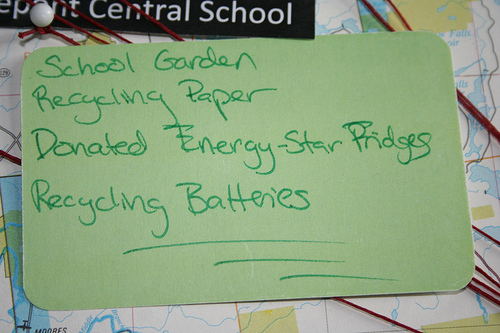 Central School
School Garden
Recycling Paper
Donated Energy-Star Fridges
Recycling Batteries
MOORES